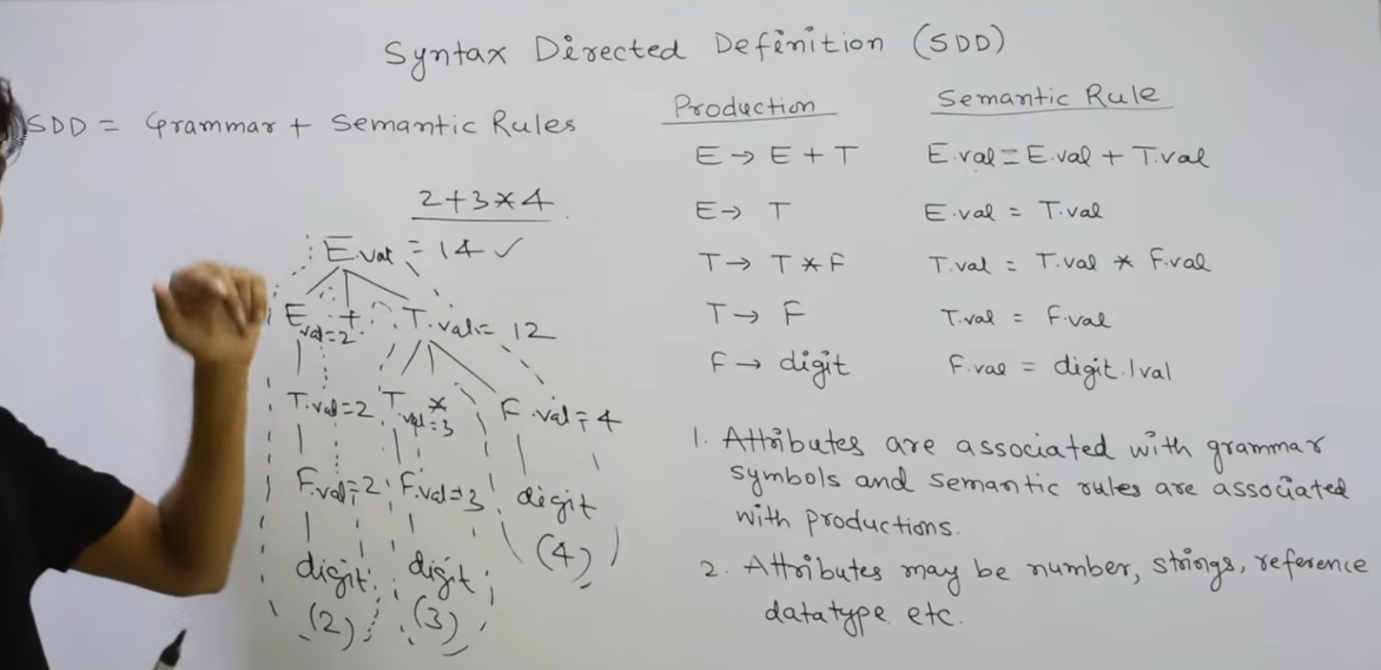 Syntax Directed Definition (SDD)
SDD = Grammar + Semantic Rules
2+3*4
E.val = 14 ✓
E + T.val = 12
val=2
T.val=2 T * F.val = 4
.val=3
F.val=2 F.val=3 digit
digit digit (4)
(2) (3)
Production Semantic Rule
E → E + T E.val = E.val + T.val
E → T E.val = T.val
T → T * F T.val = T.val * F.val
T → F T.val = F.val
F → digit F.val = digit.lval
1. Attributes are associated with grammar
symbols and semantic rules are associated
with productions.
2. Attributes may be number, strings, reference
datatype etc.